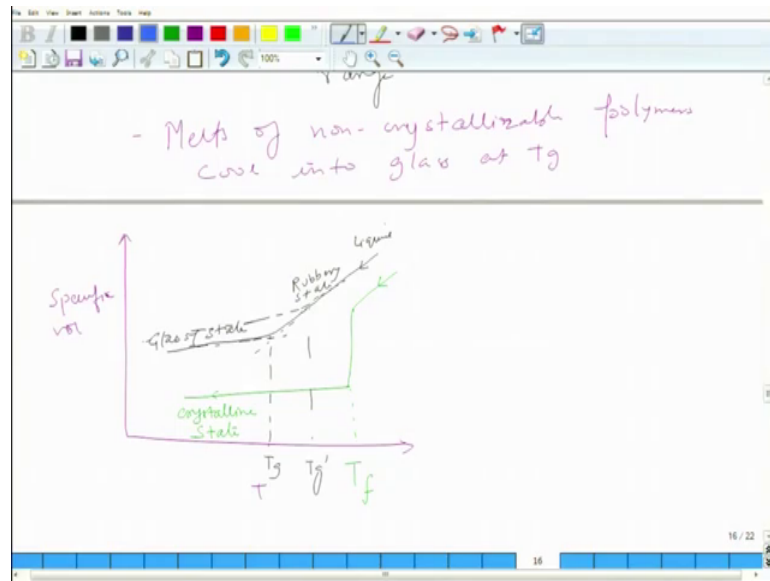 File Edit View Insert Actions Tools Help
B I
100%
range
- Melts of non-crystallizable polymers
cool into glass at Tg
Liquid
Rubbery
state
Specific
vol
Glassy State
Crystalline
State
Tg Tg' Tf
T
16 / 22
16